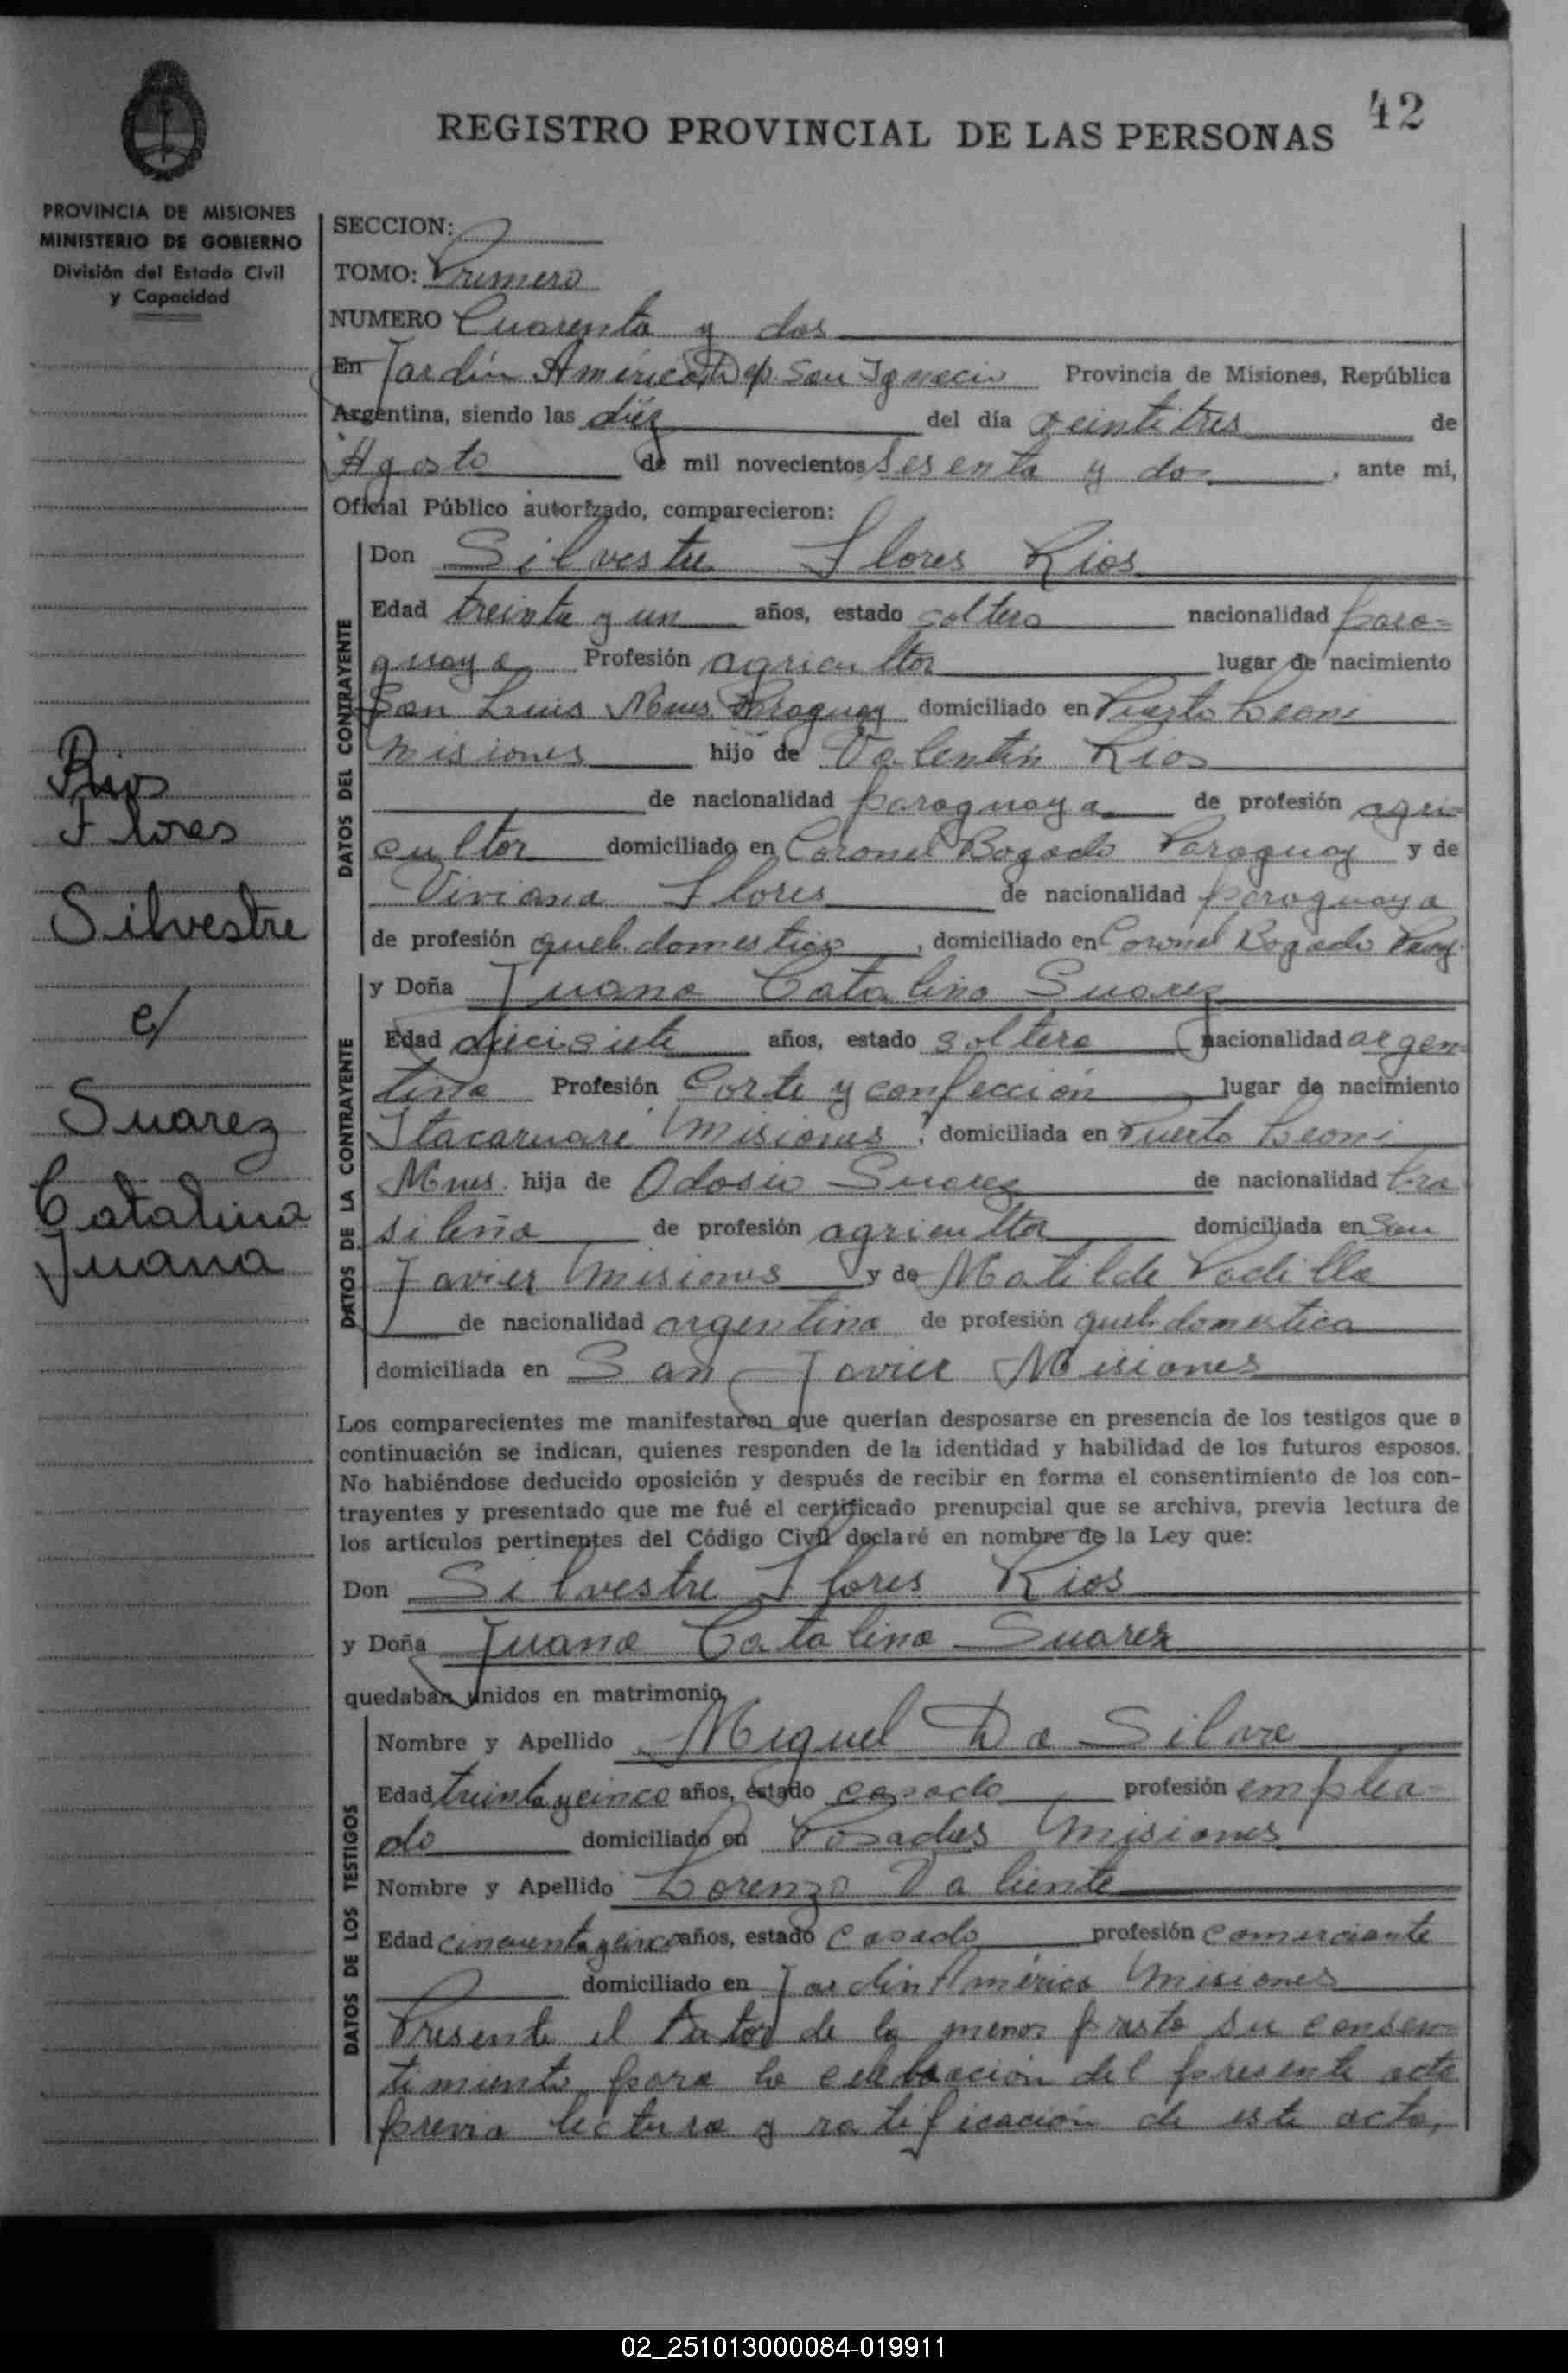 42
REGISTRO PROVINCIAL DE LAS PERSONAS
PROVINCIA DE MISIONES
MINISTERIO DE GOBIERNO
División del Estado Civil
y Capacidad
Rios
Flores
Silvestre
c/
Suarez
Catalina
Juana
SECCION:
TOMO: Primero
NUMERO Cuarenta y dos
En Jardín América Dep. San Ignacio Provincia de Misiones, República
Argentina, siendo las diez del día veintitres de
Agosto de mil novecientos sesenta y dos, ante mi,
Oficial Público autorizado, comparecieron:
DATOS DEL CONTRAYENTE
Don Silvestre Flores Rios
Edad treinta y un años, estado soltero nacionalidad para=
guaya Profesión agricultor lugar de nacimiento
San Luis Mnes. Paraguay domiciliado en Puerto Leoni
Misiones hijo de Valentin Rios
de nacionalidad paraguaya de profesión agri=
cultor domiciliado en Coronel Bogado Paraguay y de
Viviana Flores de nacionalidad paraguaya
de profesión queh. domestico, domiciliado en Coronel Bogado
DATOS DE LA CONTRAYENTE
y Doña Juana Catalina Suarez
Edad diecisiete años, estado soltera nacionalidad argen=
tina Profesión Corte y confección lugar de nacimiento
Itacaruaré Misiones, domiciliada en Puerto Leoni
Mnes. hija de Odosio Suarez de nacionalidad bra
sileña de profesión agricultor domiciliada en San
Javier Misiones y de Matilde Padilla
de nacionalidad argentina de profesión queh. domestica
domiciliada en San Javier Misiones
Los comparecientes me manifestaron que querían desposarse en presencia de los testigos que a
continuación se indican, quienes responden de la identidad y habilidad de los futuros esposos.
No habiéndose deducido oposición y después de recibir en forma el consentimiento de los con-
trayentes y presentado que me fué el certificado prenupcial que se archiva, previa lectura de
los artículos pertinentes del Código Civil declaré en nombre de la Ley que:
Don Silvestre Flores Rios
y Doña Juana Catalina Suarez
quedaban unidos en matrimonio
DATOS DE LOS TESTIGOS
Nombre y Apellido Miguel Da Silva
Edad treinta y cinco años, estado casado profesión emplea=
do domiciliado en Posadas Misiones
Nombre y Apellido Lorenzo Valiente
Edad cincuenta y cinco años, estado casado profesión comerciante
domiciliado en Jardin América Misiones
Presente el tutor de la menor prestó su consen=
timiento para la celebración del presente acto
previa lectura y ratificación de este acta,
02_251013000084-019911